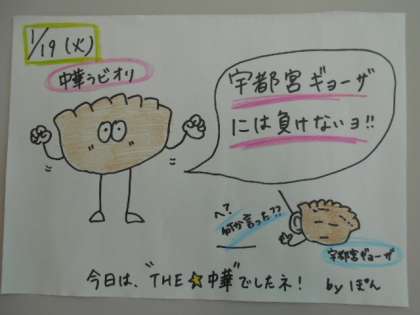 1/19(火)
中華ラビオリ
宇都宮ギョーザ
には負けないヨ!!
へ?
何か言った??
宇都宮ギョーザ
今日は、"THE☆中華"でしたネ!
by ぽん